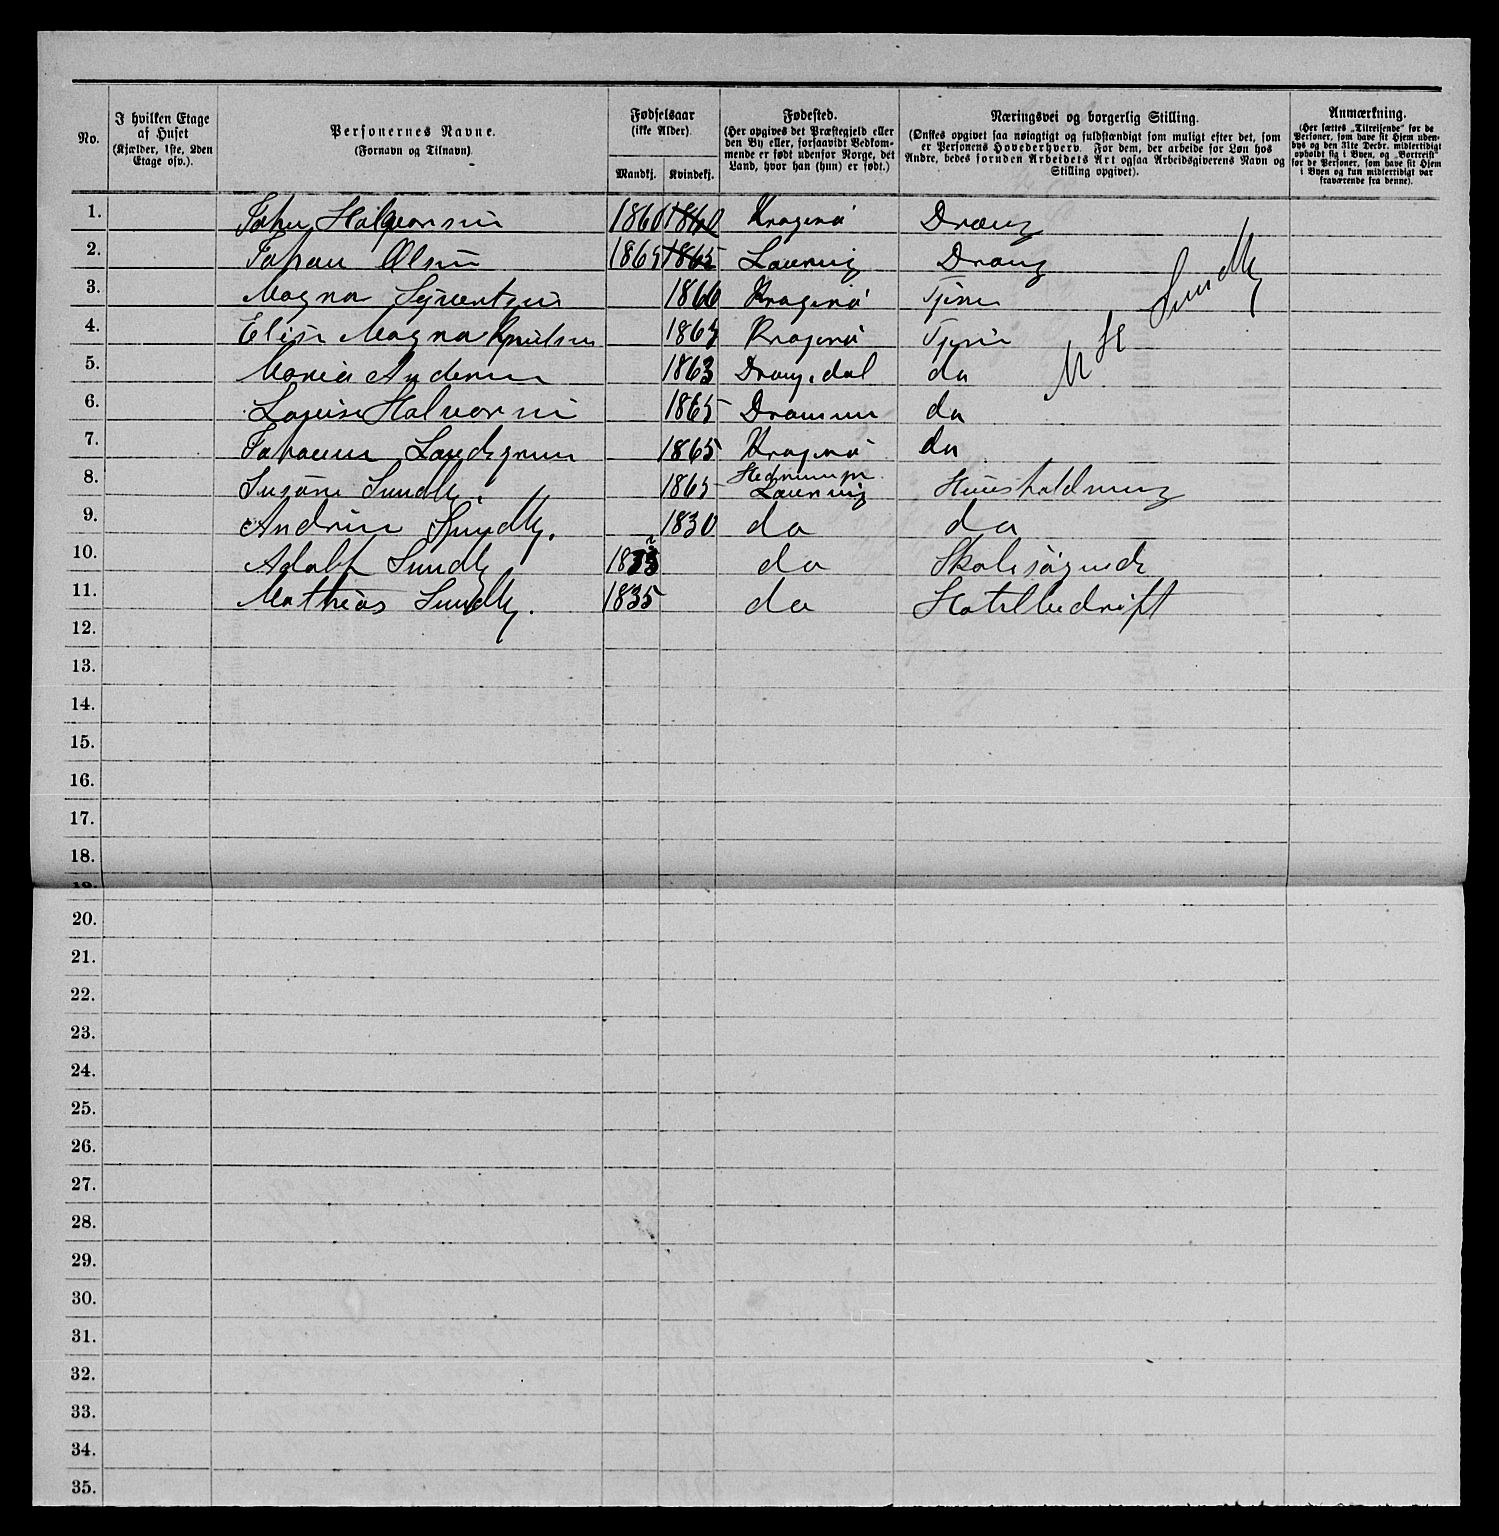 No.
I hvilken Etage af Huset (Kjælder, 1ste, 2den Etage osv.).
Personernes Navne. (Fornavn og Tilnavn).
Fødselsaar (ikke Alder).
Mandkj. Kvindekj.
Fødested. (Her opgives det Præstegjeld eller den By eller, forsaavidt Vedkommende er født udenfor Norge, det Land, hvor han (hun) er født.)
Næringsvei og borgerlig Stilling. (Ønskes opgivet saa nøiagtigt og fuldstændigt som muligt efter det, som er Personens Hovederhverv. For dem, der arbeide for Løn hos Andre, bedes foruden Arbeidets Art ogsaa Arbeidsgiverens Navn og Stilling opgivet).
Anmærkning. (Her sættes „Tilreisende" for de Personer, som have sit Hjem udenbys og den 31te Decbr. midlertidigt opholdt sig i Byen, og „Bortreist" for de Personer, som have sit Hjem i Byen og kun midlertidigt var fraværende fra denne).
1. John Halvorsen 1860 1860 Kragerø Dreng
2. Johan Olsen 1865 1865 Laurvig Dreng
3. Magna 1866 Kragerø Tjener
4. Elise Magna Knudsen 1865 Kragerø Tjener
5. Maria Andersen 1863 Drangedal do
6. Lovise Halvorsen 1865 Drammen do
7. Johanne 1865 Kragerø do
8. Susane Sundby. 1865 Hedrum pr. Laurvig Huusholdning
9. Andrine Sundby. 1830 do do
10. Adolph Sundby do Skolesøgende
11. Mathias Sundby. 1835 do Hotelbedrift
M H Sundby
12.
13.
14.
15.
16.
17.
18.
19.
20.
21.
22.
23.
24.
25.
26.
27.
28.
29.
30.
31.
32.
33.
34.
35.